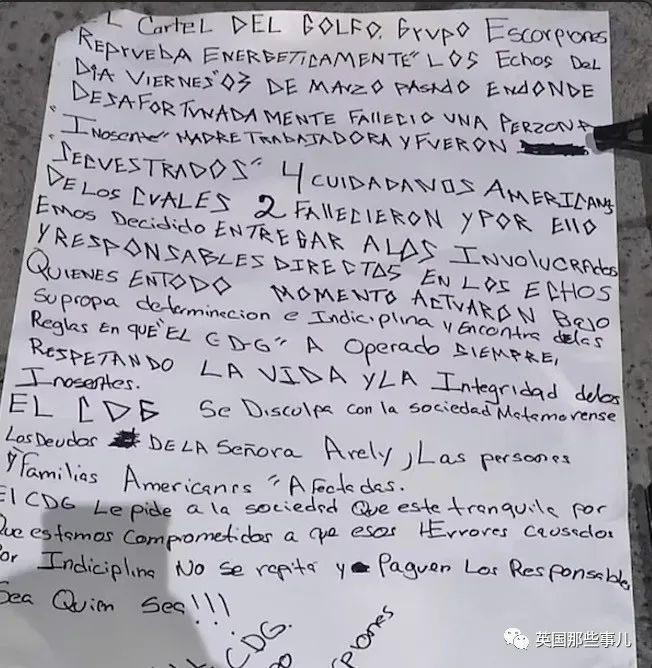 EL Cartel DEL GOLFO. Grupo Escorpiones
REPRUEBA ENERGETICAMENTE" LOS Echos DEL
DIA VIERNES" 03 DE MARZO PASADO ENDONDE
DESAFORTUNADAMENTE FALLECIO UNA PERZONA
"INOSENTE" MADRE TRABAJADORA Y FUERON
SECUESTRADOS" 4 CUIDADANOS AMERICANS
DE LOS CUALES 2 FALLECIERON Y POR ELLO
EMOS DECIDIDO ENTREGAR A LOS INVOLUCRADOS
Y RESPONSABLES DIRECTOS EN LOS ECHOS
QUIENES ENTODO MOMENTO ACTUARON BAJO
su propa determinecion e Indiciplina y Encontra delas
Reglas En que "EL C-D-G" A Operado SIEMPRE,
RESPETANDO LA VIDA Y LA Integridad delos
Inosentes.
EL CDG Se Disculpa con la sociedad Matamorense
Los Deudos DE LA Señora Arely, Las persones
Y familias Americanes "Afectadas.
El CDG Le pide a la sociedad Que este tranquila por
Que estamos comprometidos a que esos Errores causados
Por Indiciplina No se repita y Paguen Los Responsables
Sea Quien Sea!!!
CDG.
英国那些事儿